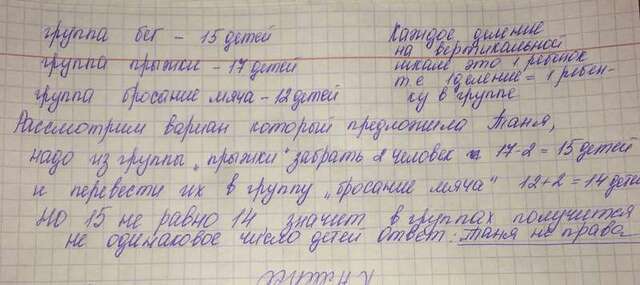 группа бег - 15 детей
группа прыжки - 17 детей
группа бросание мяча - 12 детей
Каждое деление
на вертикальной
шкале это 1 ребёнок
т.е 1 деление = 1 ребен-
ку в группе
Рассмотрим вариан который предложила Таня,
надо из группы "прыжки" забрать 2 человек 17-2 = 15 детей
и перевести их в группу "бросание мяча" 12+2 = 14 детей
но 15 не равно 14 значит в группах получится
не одинаковое число детей ответ: Таня не права